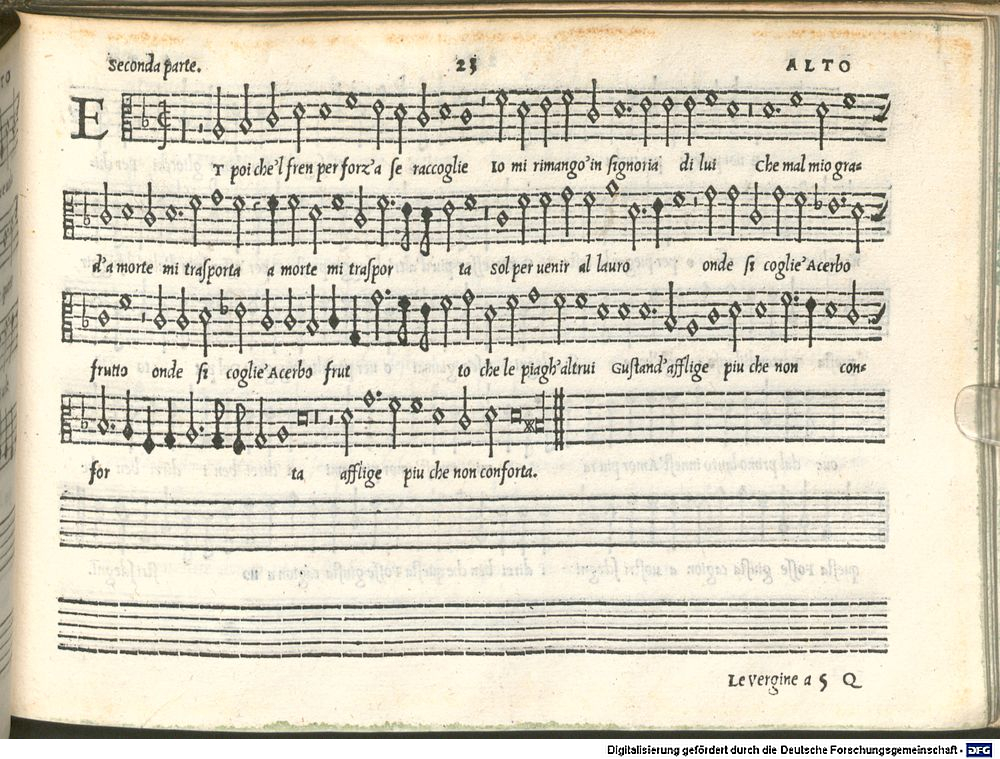 Seconda parte. 23 ALTO
ET poi che'l fren per forz'a se raccoglie Io mi rimango'in signoria di lui Che mal mio gra-
d'a morte mi trasporta a morte mi traspor ta sol per uenir al lauro onde si coglie'Acerbo
frutto onde si coglie'Acerbo frut to che le piagh'altrui Gustand'afflige piu che non con-
for ta afflige piu che non conforta.
Le Vergine a 5 Q
Digitalisierung gefördert durch die Deutsche Forschungsgemeinschaft - DFG